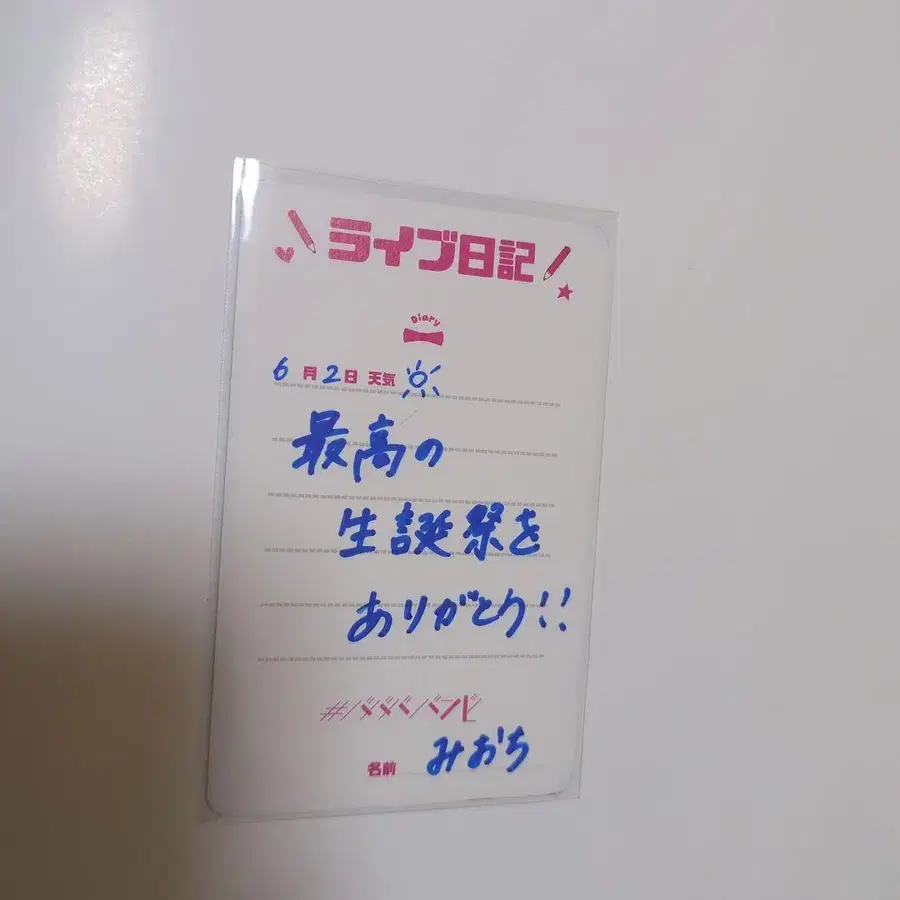 ライブ日記
Diary
6月2日 天気
最高の
生誕祭を
ありがとう!!
名前 みおち